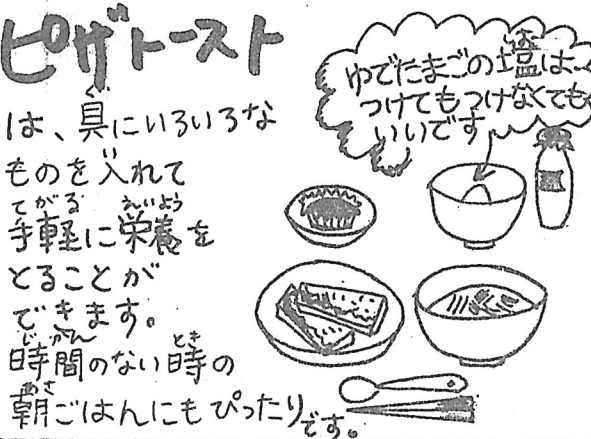 ピザトースト
は、具にいろいろな
ぐ
ものを入れて
い
手軽に栄養を
てがる えいよう
とることが
できます。
時間のない時の
じかん とき
朝ごはんにもぴったりです。
あさ
ゆでたまごの塩は
しお
つけてもつけなくても
いいです